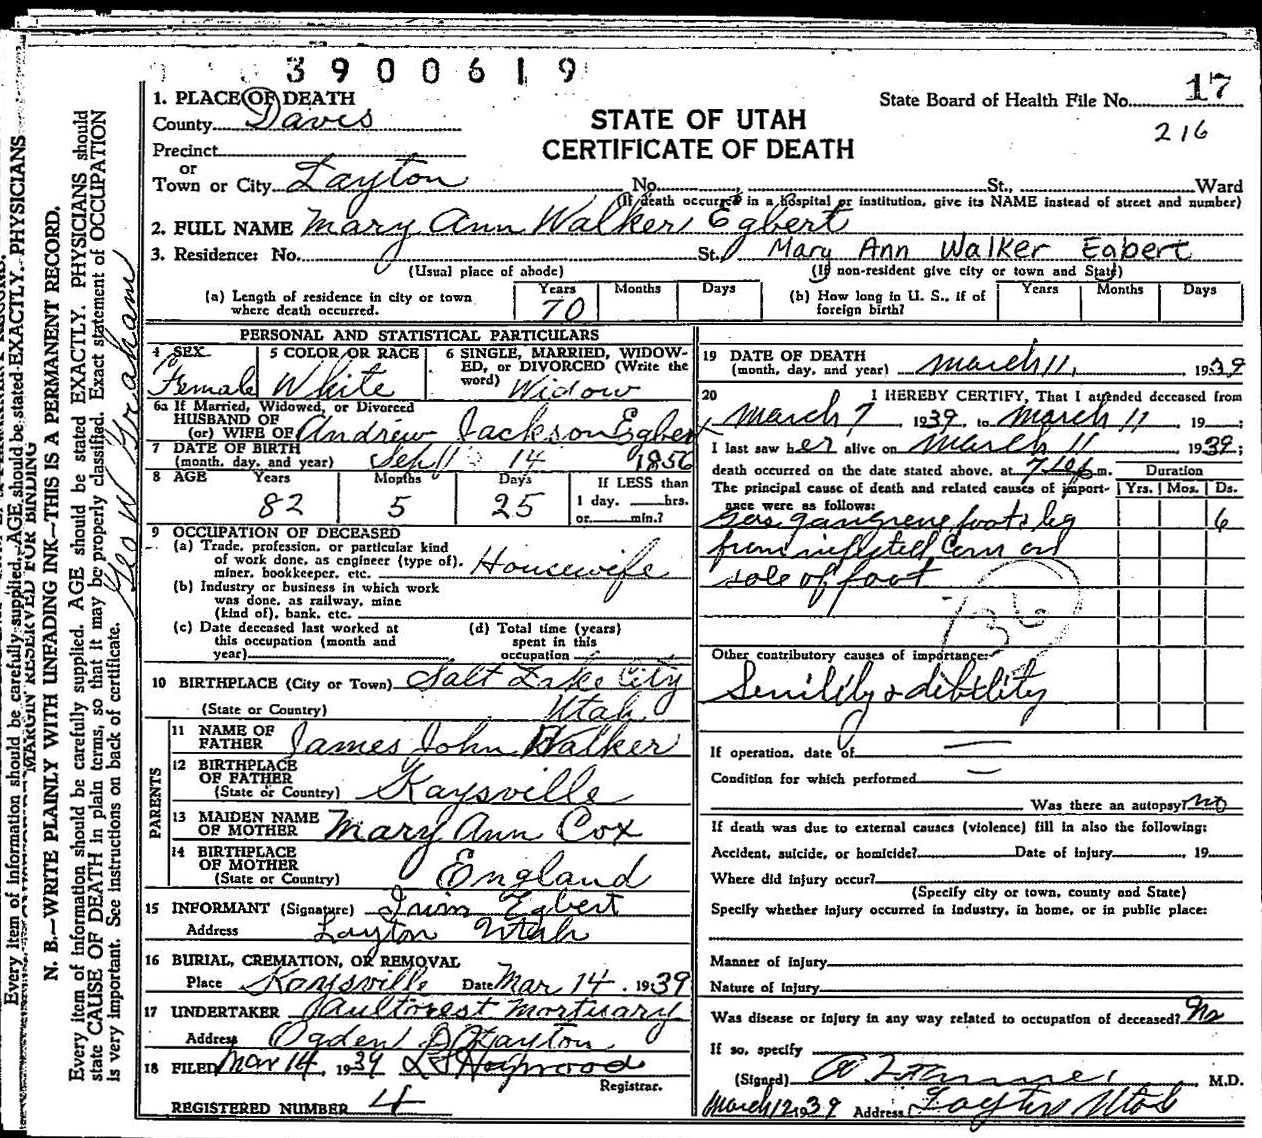 3900619
1. PLACE OF DEATH
County Davis
Precinct
or
Town or City Layton No. St., Ward
(If death occurred in a hospital or institution, give its NAME instead of street and number)
STATE OF UTAH
CERTIFICATE OF DEATH
State Board of Health File No. 17
216
2. FULL NAME Mary Ann Walker Egbert
3. Residence: No. St. Mary Ann Walker Egbert
(Usual place of abode) (If non-resident give city or town and State)
(a) Length of residence in city or town where death occurred. Years 70 Months Days
(b) How long in U. S., if of foreign birth? Years Months Days
PERSONAL AND STATISTICAL PARTICULARS
4 SEX Female
5 COLOR OR RACE White
6 SINGLE, MARRIED, WIDOWED, or DIVORCED (Write the word) Widow
6a If Married, Widowed, or Divorced
HUSBAND OF
(or) WIFE OF Andrew Jackson Egbert
7 DATE OF BIRTH
(month, day, and year) Sep 14 1856
8 AGE Years 82 Months 5 Days 25 If LESS than 1 day, hrs. or min.?
9 OCCUPATION OF DECEASED
(a) Trade, profession, or particular kind
of work done, as engineer (type of),
miner, bookkeeper, etc. Housewife
(b) Industry or business in which work
was done, as railway, mine
(kind of), bank, etc.
(c) Date deceased last worked at
this occupation (month and
year)
(d) Total time (years)
spent in this
occupation
10 BIRTHPLACE (City or Town) Salt Lake City
(State or Country) Utah
PARENTS
11 NAME OF
FATHER James John Walker
12 BIRTHPLACE
OF FATHER
(State or Country) Kaysville
13 MAIDEN NAME
OF MOTHER Mary Ann Cox
14 BIRTHPLACE
OF MOTHER
(State or Country) England
15 INFORMANT (Signature) Egbert
Address Layton Utah
16 BURIAL, CREMATION, OR REMOVAL
Place Kaysville Date Mar 14, 1939
17 UNDERTAKER Mortuary
Address Ogden Layton
18 FILED Mar 14, 1939 Heywood
Registrar.
REGISTERED NUMBER 4
19 DATE OF DEATH
(month, day, and year) March 11, 1939
20 I HEREBY CERTIFY, That I attended deceased from
March 7, 1939, to March 11, 19 ;
I last saw her alive on March 11 1939;
death occurred on the date stated above, at m. Duration
The principal cause of death and related causes of importance were as follows: Yrs. Mos. Ds.
Gas gangrene foot & leg 6
from infected Corn on
sole of foot
Other contributory causes of importance:
Senility & debility
If operation, date of —
Condition for which performed —
Was there an autopsy? no
If death was due to external causes (violence) fill in also the following:
Accident, suicide, or homicide? Date of injury , 19
Where did injury occur?
(Specify city or town, county and State)
Specify whether injury occurred in industry, in home, or in public place:
Manner of injury
Nature of injury
Was disease or injury in any way related to occupation of deceased? No
If so, specify
(Signed) , M.D.
March 12 1939 Address Layton Utah
Every item of information should be carefully supplied. AGE should be stated EXACTLY. PHYSICIANS
MARGIN RESERVED FOR BINDING
N. B.—WRITE PLAINLY WITH UNFADING INK—THIS IS A PERMANENT RECORD.
Every item of information should be carefully supplied. AGE should be stated EXACTLY. PHYSICIANS should
state CAUSE OF DEATH in plain terms, so that it may be properly classified. Exact statement of OCCUPATION
is very important. See instructions on back of certificate.
Geo W Graham